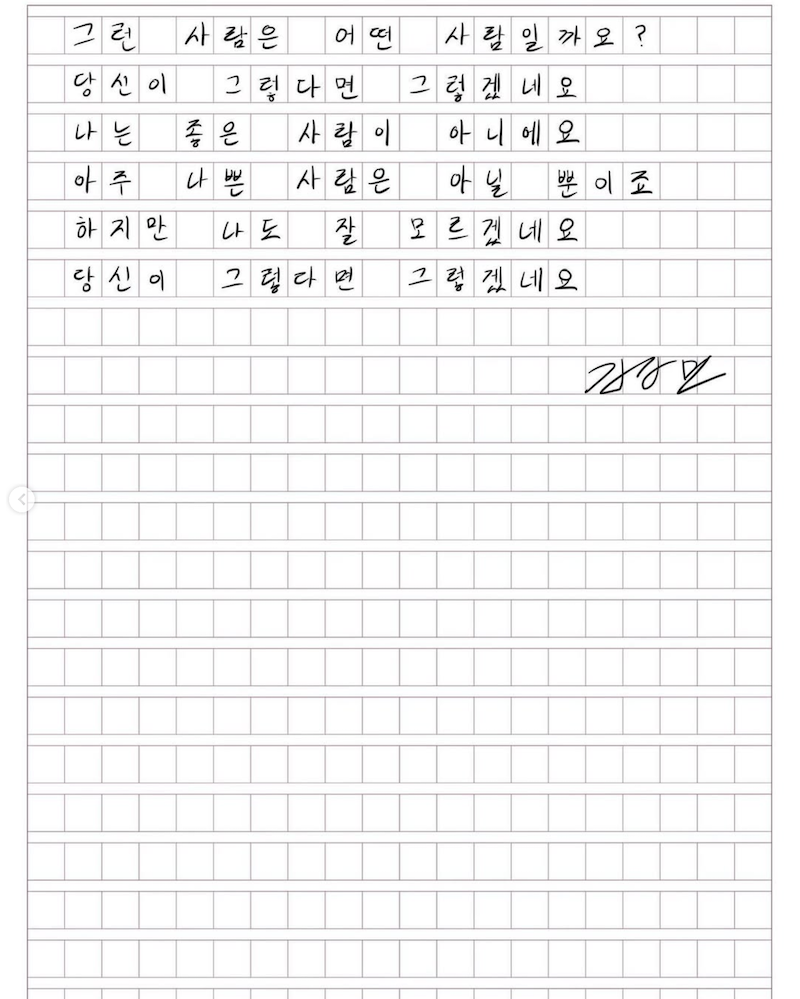 그런 사람은 어떤 사람일까요?
당신이 그렇다면 그렇겠네요
나는 좋은 사람이 아니에요
아주 나쁜 사람은 아닐 뿐이죠
하지만 나도 잘 모르겠네요
당신이 그렇다면 그렇겠네요
김강민